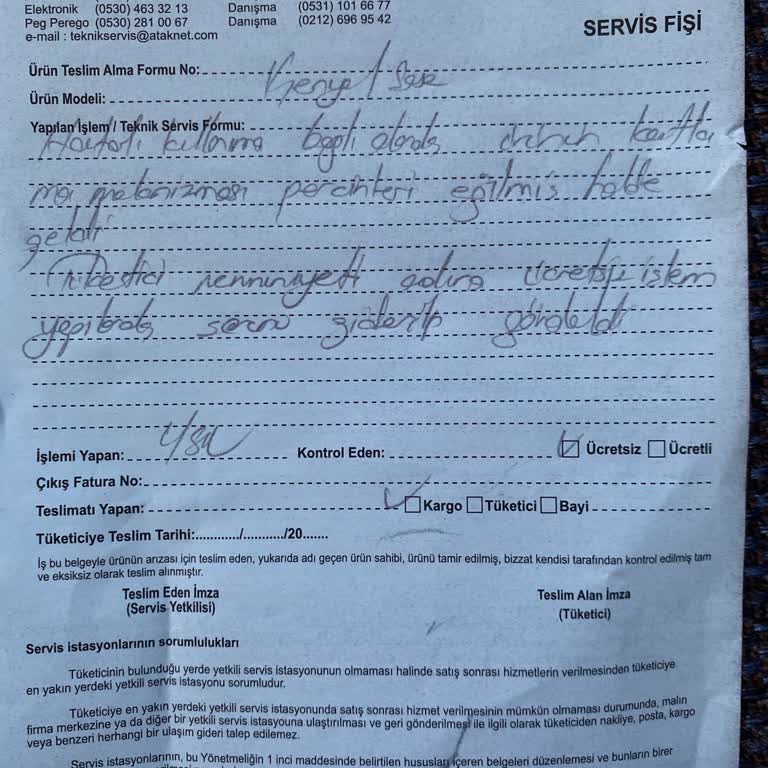 Elektronik (0530) 463 32 13 Danışma (0531) 101 66 77
Peg Perego (0530) 281 00 67 Danışma (0212) 696 95 42
e-mail : teknikservis@ataknet.com
SERVİS FİŞİ
Ürün Teslim Alma Formu No:
Ürün Modeli:
Yapılan İşlem / Teknik Servis Formu:
Hatalı kullanıma bağlı olarak katla
ma mekanizması perçinleri eğilmiş halde
geldi
Tüketici memnuniyeti adına ücretsiz işlem
yapılarak sorun giderilip gönderildi
İşlemi Yapan: Kontrol Eden: Ücretsiz Ücretli
Çıkış Fatura No:
Teslimatı Yapan: Kargo Tüketici Bayi
Tüketiciye Teslim Tarihi:.........../.........../20.......
İş bu belgeyle ürünün arızası için teslim eden, yukarıda adı geçen ürün sahibi, ürünü tamir edilmiş, bizzat kendisi tarafından kontrol edilmiş tam
ve eksiksiz olarak teslim alınmıştır.
Teslim Eden İmza Teslim Alan İmza
(Servis Yetkilisi) (Tüketici)
Servis istasyonlarının sorumlulukları
Tüketicinin bulunduğu yerde yetkili servis istasyonunun olmaması halinde satış sonrası hizmetlerin verilmesinden tüketiciye
en yakın yerdeki yetkili servis istasyonu sorumludur.
Tüketiciye en yakın yerdeki yetkili servis istasyonunda satış sonrası hizmet verilmesinin mümkün olmaması durumunda, malın
firma merkezine ya da diğer bir yetkili servis istasyonuna ulaştırılması ve geri gönderilmesi ile ilgili olarak tüketiciden nakliye, posta, kargo
veya benzeri herhangi bir ulaşım gideri talep edilemez.
Servis istasyonlarının, bu Yönetmeliğin 1 inci maddesinde belirtilen hususları içeren belgeleri düzenlemesi ve bunların birer